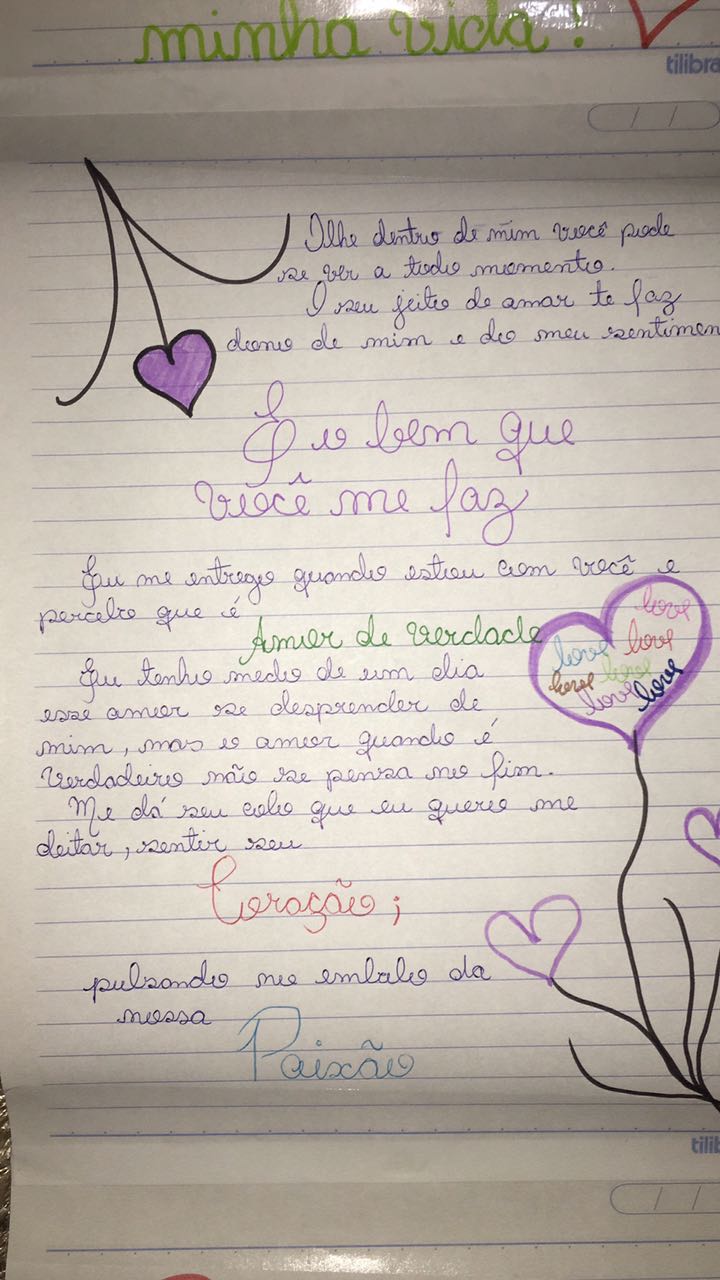 minha vida!
tilibra
Olhe dentro de mim você pode
se ver a todo momento.
O seu jeito de amar te faz
dono de mim e do meu sentimen
É o bem que
você me faz
Eu me entrego quando estou com você e
percebo que é
Amor de verdade
Eu tenho medo de um dia
esse amor se desprender de
mim, mas o amor quando é
verdadeiro não se pensa no fim.
Me dá seu colo que eu quero me
deitar, sentir seu
Coração;
pulsando no embalo da
nossa
Paixão
love
love love
love love
love love
tilib